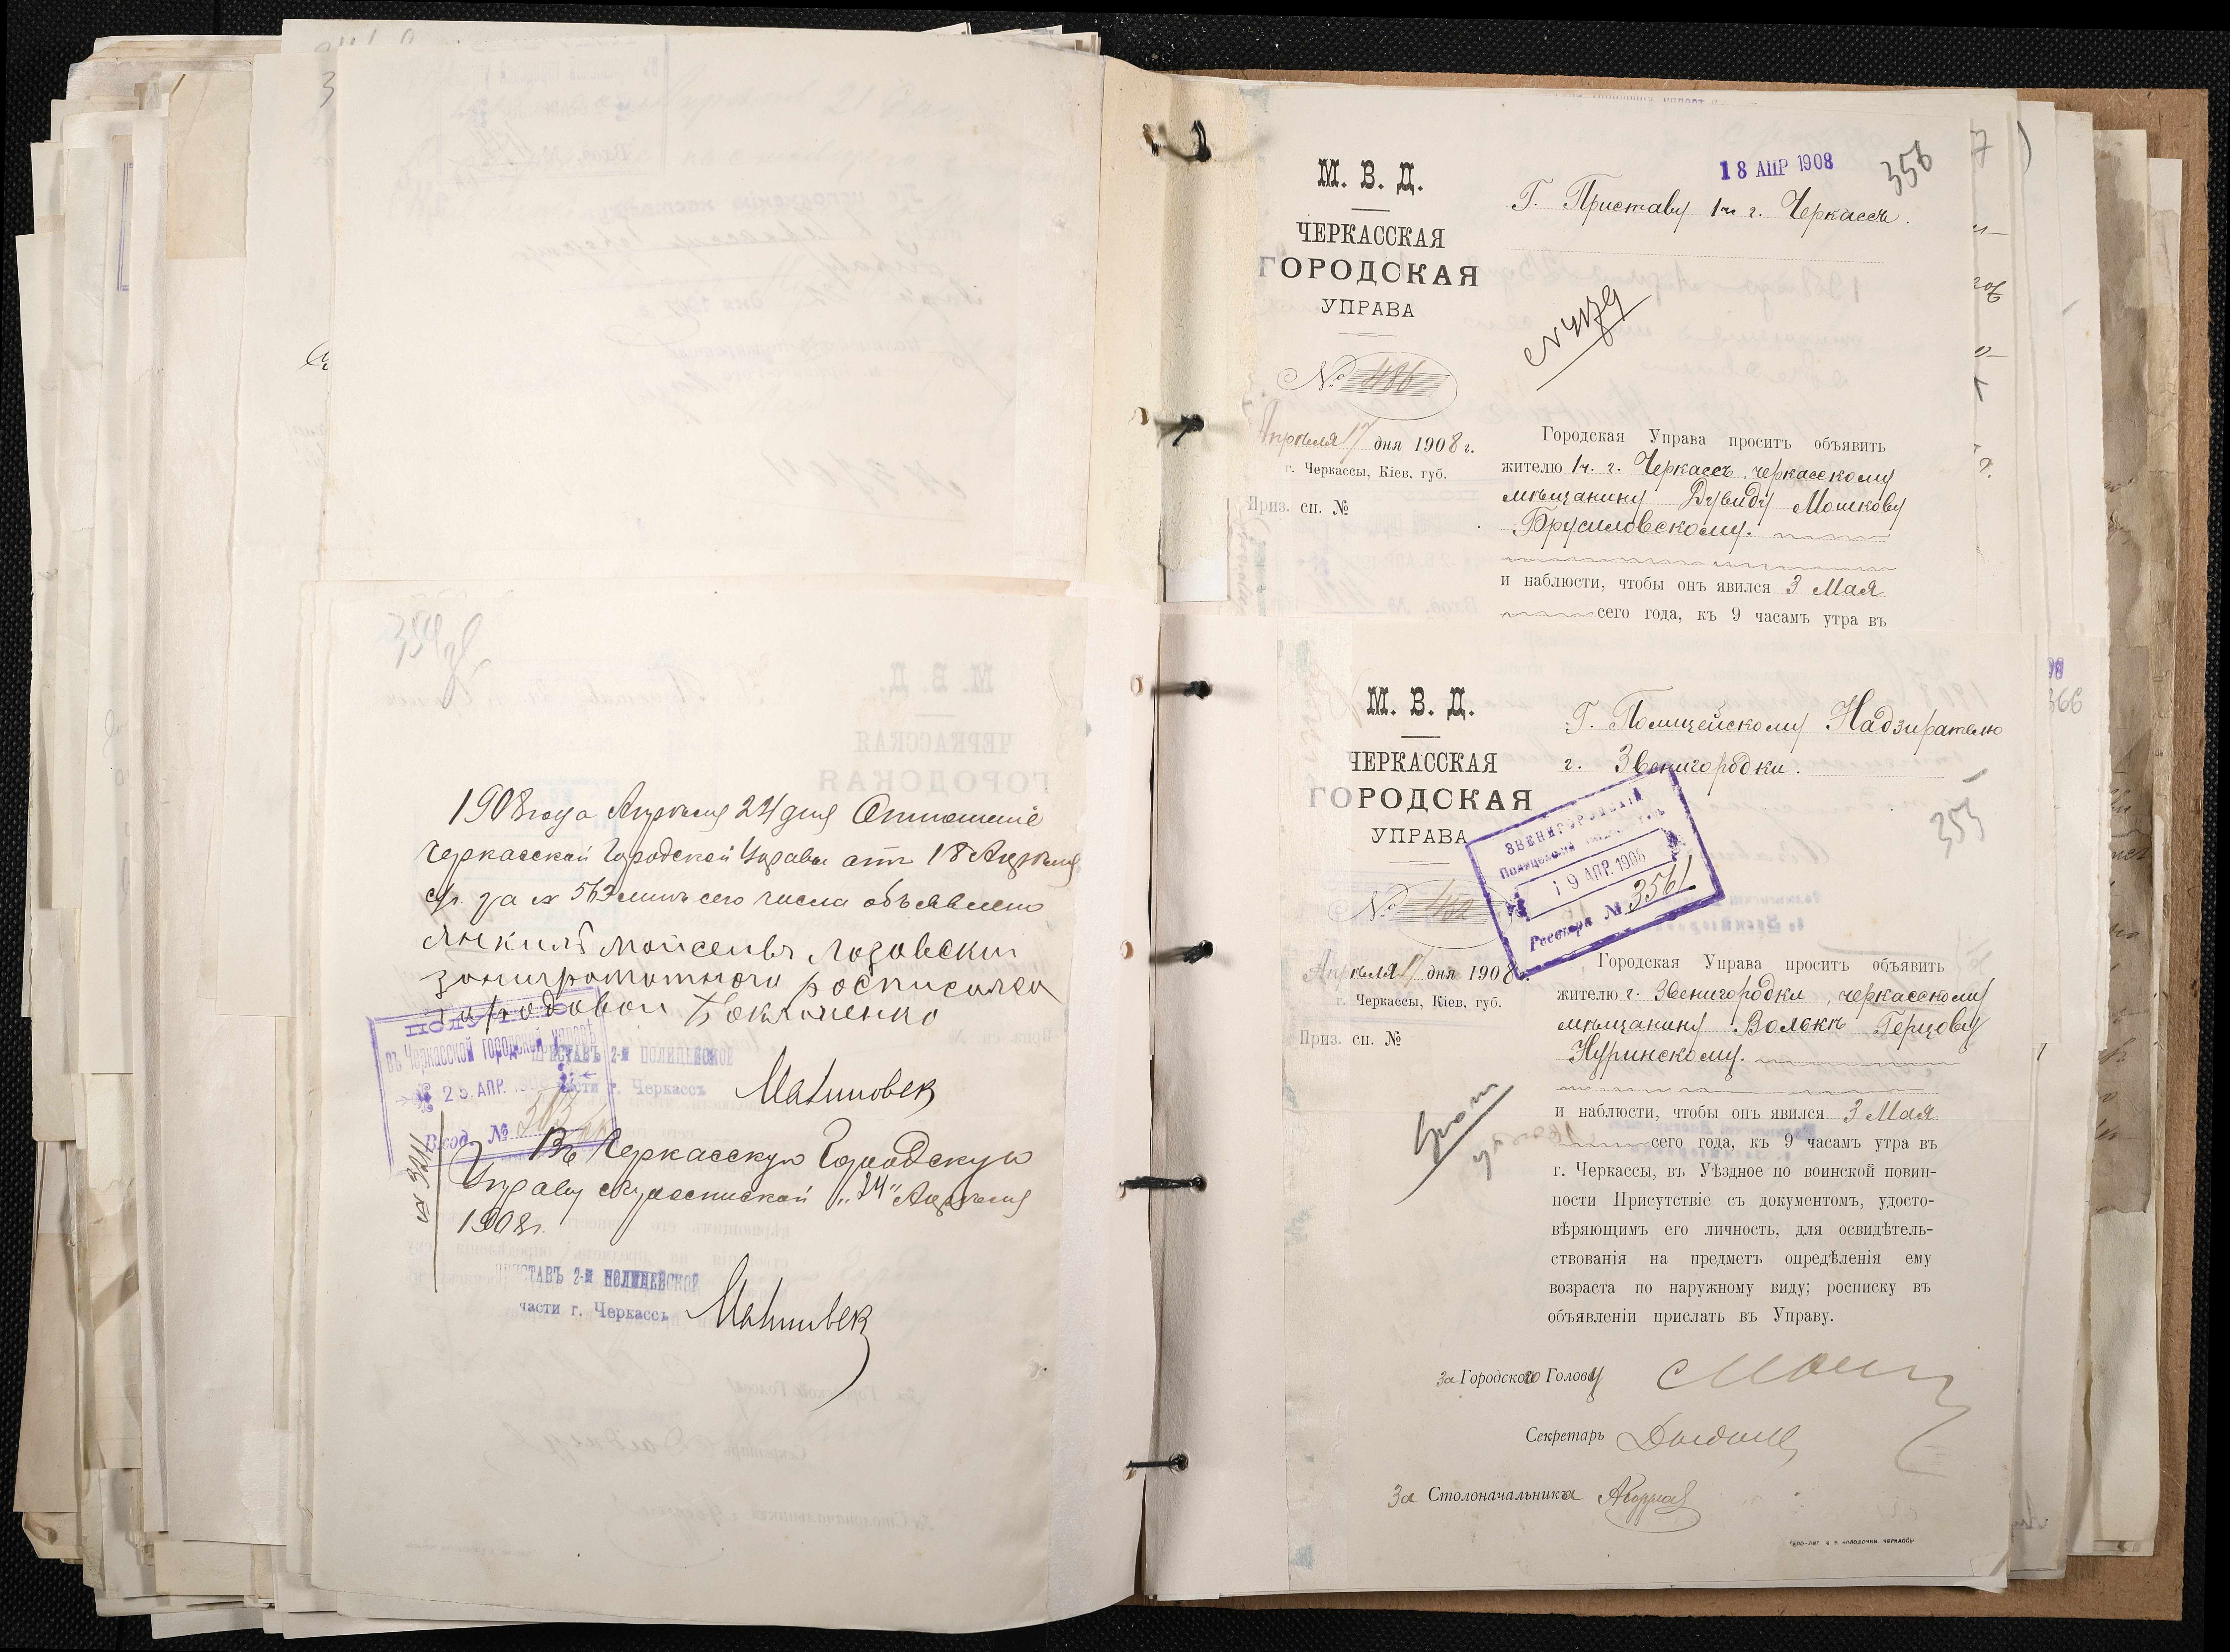 354
1908 года Апреля 24 дня Отношение
Черкасской Городской Управы от 18 Апреля
с/г. за № 563 мною сего числа объявлено
Янкилъ Мойсеивъ Лозовски
заниграмотного росписался
городовой
ПРИСТАВЪ 2-й ПОЛИЦЕЙСКОЙ
части г. Черкассъ
ПОЛУЧЕНО
въ Черкасской городской управѣ
25 АПР. 1908
Вход. №
№ 3211
Въ Черкасскую Городскую
Управу съ роспиской „24" Апрѣля
1908 г.
ПРИСТАВЪ 2-й ПОЛИЦЕЙСКОЙ
части г. Черкассъ
М. В. Д.
ЧЕРКАССКАЯ
ГОРОДСКАЯ
УПРАВА
№ 486
Апрѣля 17 дня 1908 г.
г. Черкассы, Кіев. губ.
Приз. сп. №
18 АПР 1908
356
Г. Приставу 1 ч. г. Черкассъ.
№ 4179
Городская Управа проситъ объявить
жителю 1 ч. г. Черкассъ, черкасскому
мѣщанину Дувиду Мошкову
Брусиловскому.
и наблюсти, чтобы онъ явился 3 Мая
сего года, къ 9 часамъ утра въ
М. В. Д.
ЧЕРКАССКАЯ
ГОРОДСКАЯ
УПРАВА
№ 452
Апрѣля 17 дня 1908 г.
г. Черкассы, Кіев. губ.
Приз. сп. №
Г. Полицейскому Надзирателю
г. Звенигородки.
355
ЗВЕНИГОРОДСКІЙ
19 АПР. 1908
Реестра № 3561
Городская Управа проситъ объявить
жителю г. Звенигородки, черкасскому
мѣщанину Волькѣ Герцову
Нуринскому.
и наблюсти, чтобы онъ явился 3 Мая
сего года, къ 9 часамъ утра въ
г. Черкассы, въ Уѣздное по воинской повин-
ности Присутствіе съ документомъ, удосто-
вѣряющимъ его личность, для освидѣтель-
ствованія на предметъ опредѣленія ему
возраста по наружному виду; росписку въ
объявленіи прислать въ Управу.
За Городского Голову
Секретарь
За Столоначальника
366